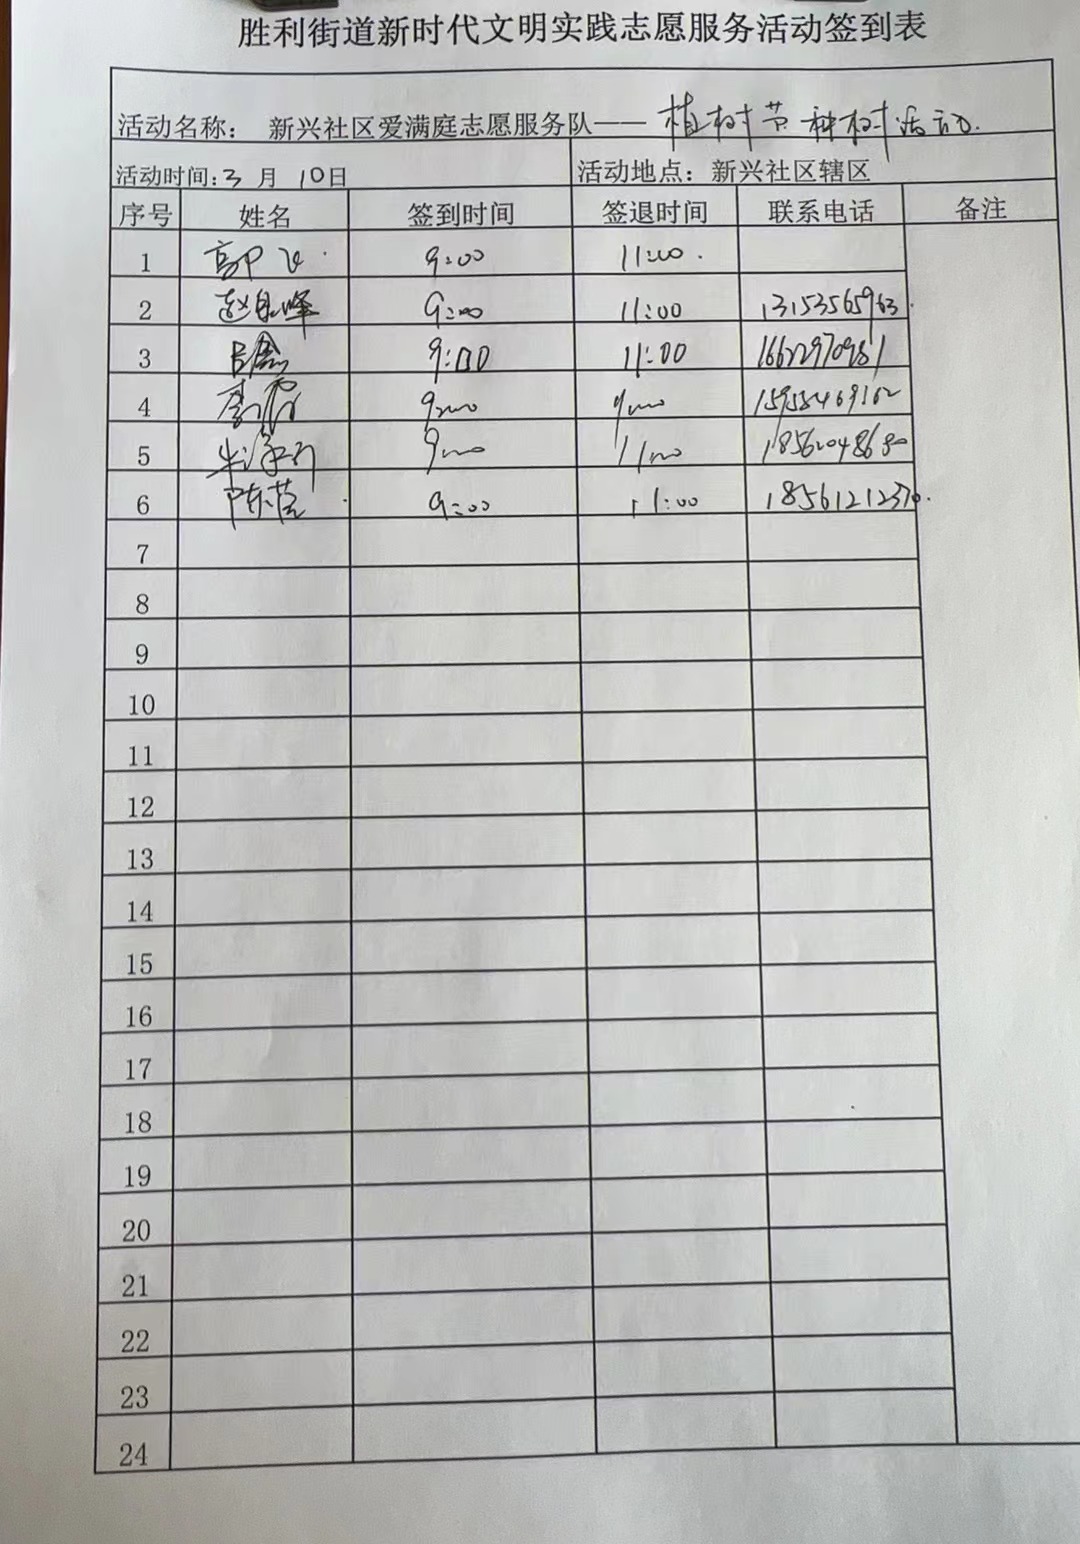 胜利街道新时代文明实践志愿服务活动签到表
活动名称： 新兴社区爱满庭志愿服务队——植树节种树活动.
活动时间:3 月 10日 活动地点：新兴社区辖区
序号 姓名 签到时间 签退时间 联系电话 备注
1 郭飞 9:00 11:00.
2 9:00 11:00 13153565963
3 9:00 11:00 16622970981
4 9:00 15955469162
5 9:00 11:00 18562048680
6 陈莹 9:00 11:00 18561212370.
7
8
9
10
11
12
13
14
15
16
17
18
19
20
21
22
23
24